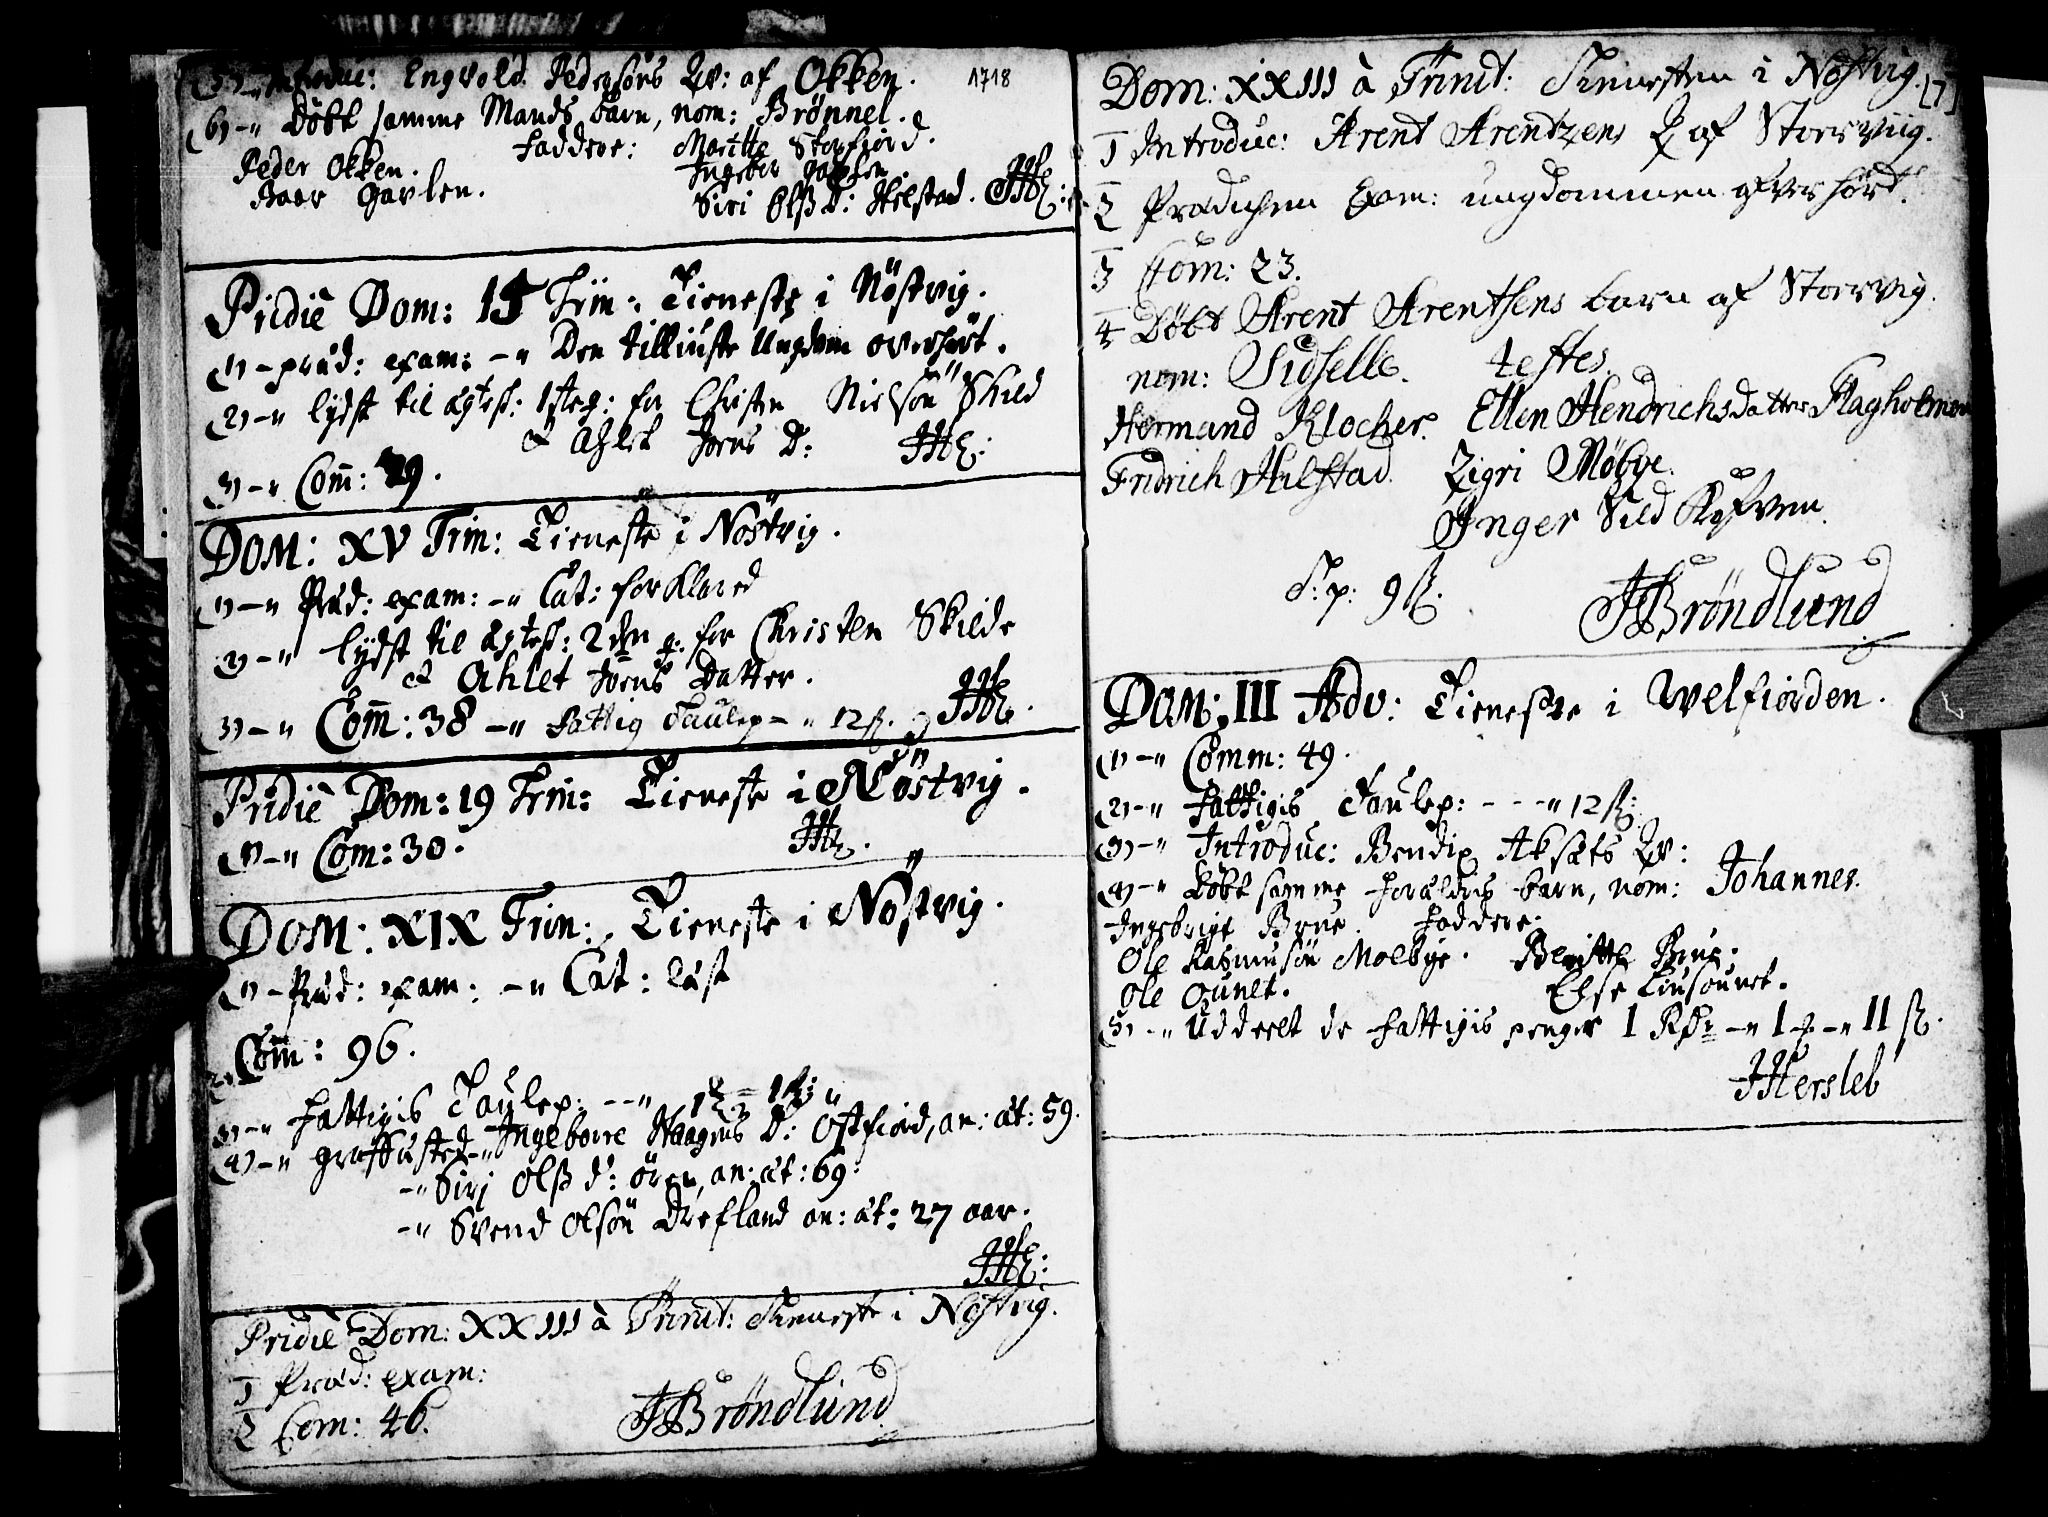 5) -" Introduc: Engvold Pedersøns Qv: af Okken. 1718
6) -" Døbt samme Mands barn, nom: Brønnel.
Faddere: Maritte Storfiord.
Peder Okken. Ingebor
Joar Gavlen. Siri Olß D: Helstad. JHL:
Pridie Dom: 15 Trin: Tieneste i Nöstvig.
1) - præd: exam: -" Den tilliuste Ungdom overhørt.
2) -" lydst til ægtesk: 1ste g: for Christen Nielsøn Skild
& Ahlet Joens D: JHL:
3) -" Com̄: 29.
DOM: XV Trin: Tieneste i Nöstvig.
1) -" Præd: exam: -" Cat: forklared
2) -" lydst til ægtesk: 2den g. for Christen Skilde
& Ahlet Joens Datter.
3) -" Com̄: 38 -" Fattig Taulep - " 12 ß. JHL.
Pridie Dom: 19 Trin: Tieneste i Nöstvig.
1) -" Com: 30. JHL.
DOM: XIX Trin: Tieneste i Nöstvig.
1) - Præd: exam: -" Cat: læst
2) Com̄: 96.
3) -" Fattigis Taulep: --"
4) -" graffästed -" Ingeborre Haagens D: Östfiord, an: æt: 59.
-" Siri Olß d: ören, an: æt: 69.
-" Svend Olsøn Drefland an: æt: 27 aar.
JHL:
Pridie Dom: XXIII à Trinit: Tieneste i Nöstvig.
1 Præd: exam:
2 Com: 46. JBröndlund
Dom: XXIII à Trinit: Tienesten i Nöstvig. [7]
1 Introduc: Arent Arentzens Q af Storviig.
2 Prædichen Exam: ungdommen ofverhört.
3 Com: 23.
4 Döbt Arent Arentsens barn af Storvig.
nom: Sidselle. testes.
Hermand Klocher. Ellen Hendrichsdatter Flagholmen
Fridrich Hilstad. Zigri Möbye.
Inger Sild Kofven.
T: p: 9 ß. JBröndlund
Dom: III Adv: Tieneste i Welfiorden.
1) -" Comm: 49.
2) -" Fattigis Taulep: - - -" 12 ß:
3) -" Introduc: Bendix Aksæts Qv:
4) -" Döbt samme Forældris barn, nom: Johannes.
Ingebrigt Brue. Faddere:
Ole Rasmusön Moebye. Beritte Brue.
Ole Gunlt. Else
5) -" Uddeelt de Fattigis penger 1 Rdr -" 1 -" 11 ß.
JHersleb